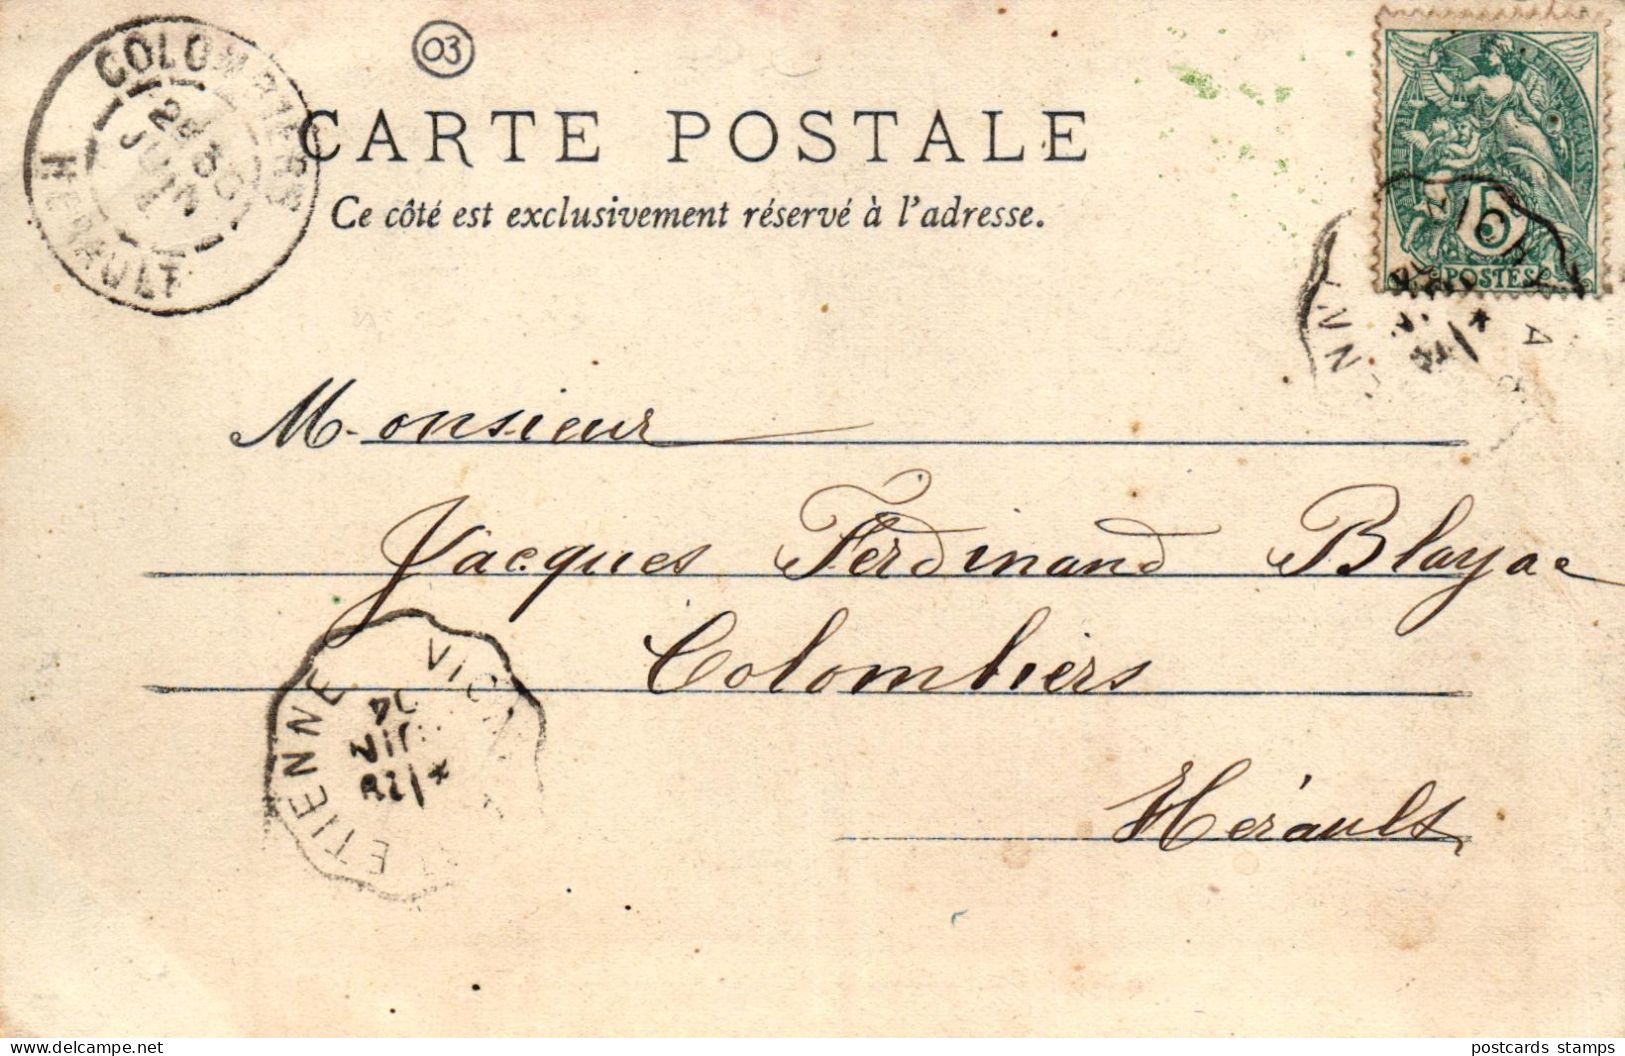 COLOMBIERS
HERAULT
JUIN
03
CARTE POSTALE
Ce côté est exclusivement réservé à l'adresse.
5
POSTES
Monsieur
Jacques Ferdinand Blayac
Colombiers
Hérault
ETIENNE
JUIN
postcards stamps